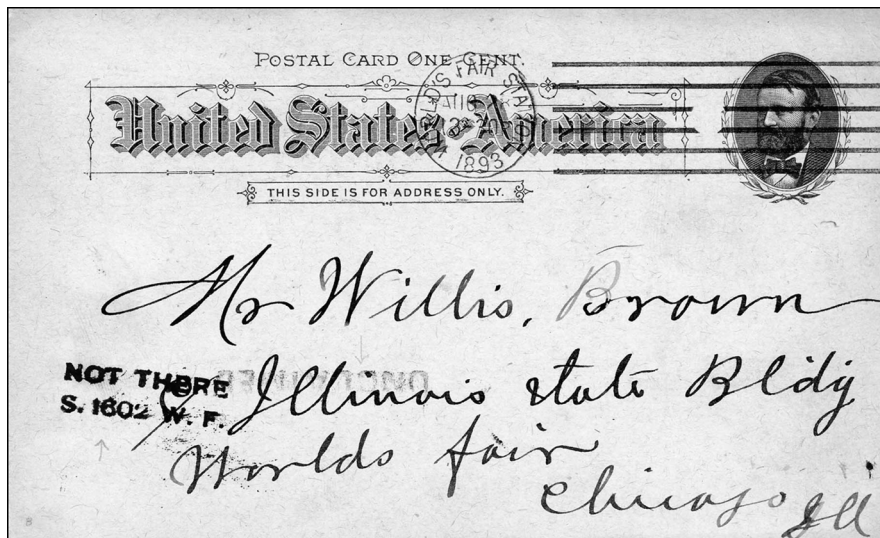 POSTAL CARD ONE CENT.
United States America
WORLD'S FAIR STA.
1893
THIS SIDE IS FOR ADDRESS ONLY.
Mr Willis, Brown
NOT THERE
S. 1602 W. F.
Illinois state Bldg
Worlds fair
Chicago Ill